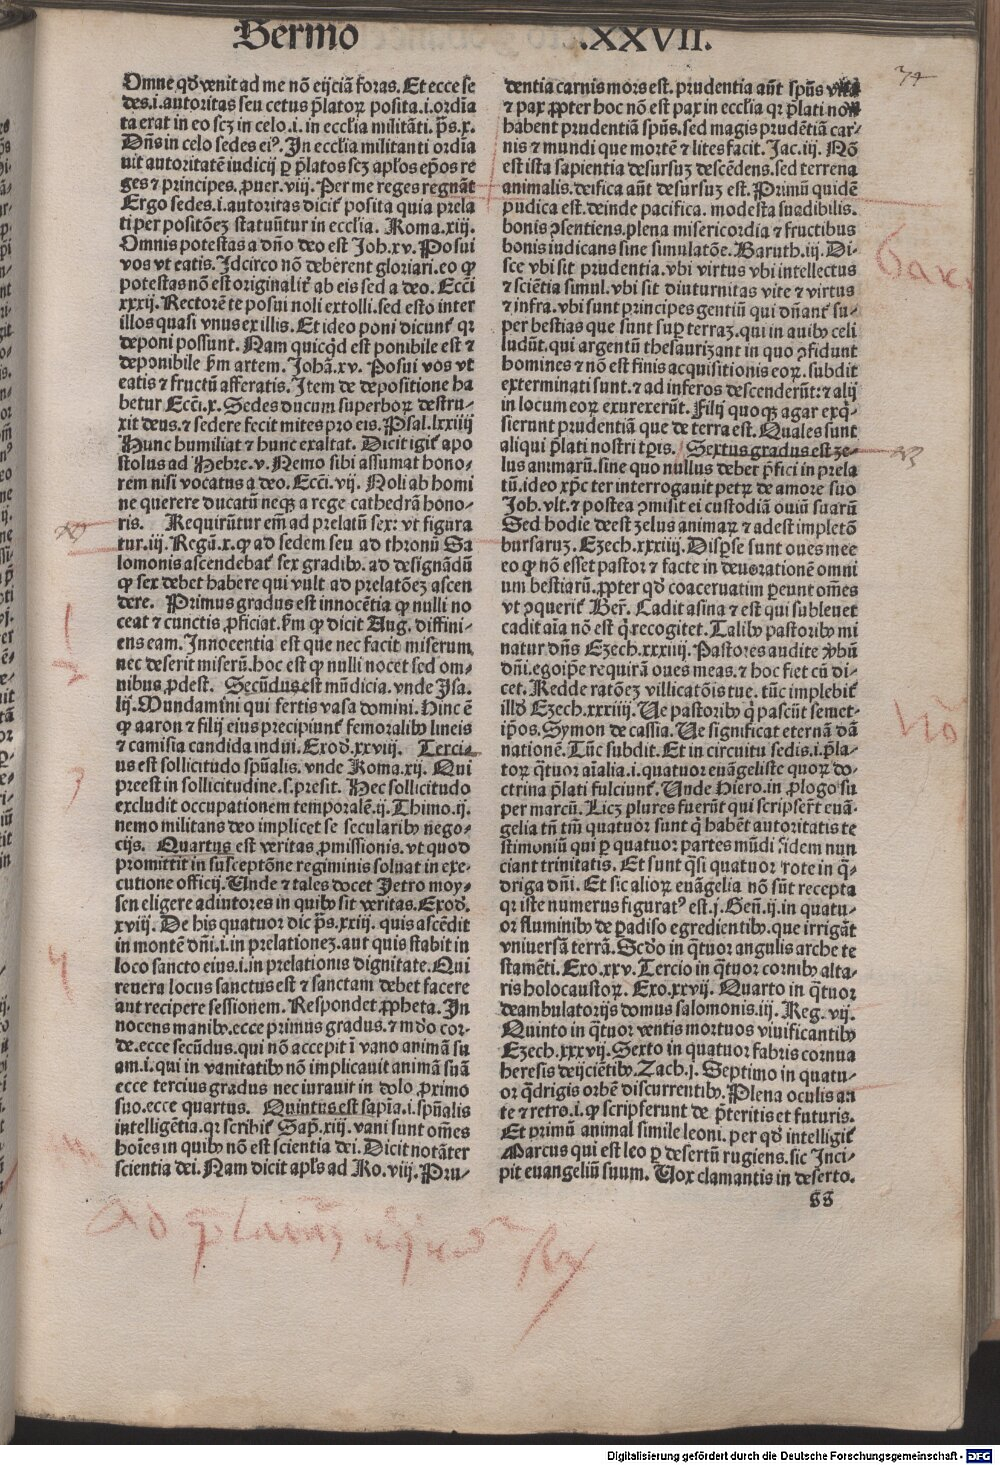 Sermo .XXVII.
74
Omne qđ venit ad me nõ eijciã foras. Et ecce se
des.i.autoritas seu cetus p̃latoꝝ posita.i.ordia
ta erat in eo scʒ in celo.i.in ecclia militãti. p̃s.x.
Dñs in celo sedes ei⁹. In ecclia militanti ordia
uit autoritatẽ iudicij ꝑ p̃latos scʒ aplos ep̃os re
ges ⁊ principes. ꝓuer.viij. Per me reges regnãt
Ergo sedes.i.autoritas dicit̃ posita quia prela
ti per positõeʒ statuũtur in ecclia. Roma.xiij.
Omnis potestas a dño deo est Joh.xv. Posui
vos vt eatis. Idcirco nõ deberent gloriari.eo ꝙ
potestas nõ est originalit̃ ab eis sed a deo. Ecci
xxxij. Rectorẽ te posui noli extolli.sed esto inter
illos quasi vnus ex illis. Et ideo poni dicunt̃ qꝛ
deponi possunt. Nam quicqđ est ponibile est ⁊
deponibile ẜm artem. Johã.xv. Posui vos vt
eatis ⁊ fructũ afferatis. Item de depositione ha
betur Ecci.x. Sedes ducum superboꝝ destru-
xit deus.⁊ sedere fecit mites pro eis. Psal.lxxiiij
Hunc humiliat ⁊ hunc exaltat. Dicit igit̃ apo
stolus ad Hebre.v. Nemo sibi assumat hono-
rem nisi vocatus a deo. Ecci.vij. Noli ab homi
ne querere ducatũ neqꝫ a rege cathedrã hono-
ris. Requirũtur em̃ ad prelatũ sex: vt figura
tur.iij. Regũ.x.ꝙ ad sedem seu ad thronũ Sa
lomonis ascendebat̃ sex gradibꝫ. ad designãdũ
ꝙ sex debet habere qui vult ad prelatõeʒ ascen
dere. Primus gradus est innocẽtia ꝙ nulli no
ceat ⁊ cunctis ꝓficiat.ẜm ꝙ dicit Aug. diffini-
ens eam. Innocentia est que nec facit miserum
nec deserit miserũ.hoc est ꝙ nulli nocet sed om-
nibus ꝓdest. Secũdus est mũdicia.vnde Isa.
lij. Mundamini qui fertis vasa domini. Hinc ẽ
ꝙ aaron ⁊ filij eius precipiunt̃ femoralibꝫ lineis
⁊ camisia candida indui. Exođ.xxviij. Terci-
us est sollicitudo sp̃ualis. vnde Roma.xij. Qui
preest in sollicitudine.s.presit. Hec sollicitudo
excludit occupationem temporalẽ.ij.Thimo.ij.
nemo militans deo implicet se secularibꝫ nego-
cijs. Quartus est veritas ꝓmissionis. vt quod
promittit in susceptõne regiminis soluat in exe-
cutione officij. Unde ⁊ tales docet Jetro moy-
sen eligere adiutores in quibꝫ sit veritas. Exođ.
xviij. De his quatuor dic p̃s.xxiij. quis ascẽdit
in montẽ dñi.i.in prelationeʒ.aut quis stabit in
loco sancto eius.i.in prelationis dignitate. Qui
reuera locus sanctus est ⁊ sanctam debet facere
aut recipere sessionem. Respondet ꝓpheta. In
nocens manibꝫ.ecce primus gradus.⁊ mũdo cor-
de.ecce secũdus.qui nõ accepit ĩ vano animã su
am.i.qui in vanitatibꝫ nõ implicauit animã suã
ecce tercius gradus nec iurauit in dolo ꝓximo
suo.ecce quartus. Quintus est sapĩa.i.sp̃ualis
intelligẽtia.qꝛ scribit̃ Sap̃.xiij. vani sunt om̃es
hoĩes in quibꝫ nõ est scientia dei. Dicit notãter
scientia dei. Nam dicit apl̃s ad Ro.viij. Pru-
dentia carnis mors est. prudentia aũt sp̃us vita
⁊ pax ꝓpter hoc nõ est pax in ecclia qꝛ p̃lati non
habent prudentiã sp̃us.sed magis prudẽtiã car-
nis ⁊ mundi que mortẽ ⁊ lites facit. Jac.iij. Nõ
est ista sapientia desursuʒ descẽdens.sed terrena
animalis.deifica aũt desursuʒ est. Primũ quidẽ
pudica est.deinde pacifica. modesta suadibilis.
bonis ꝯsentiens.plena misericordia ⁊ fructibus
bonis iudicans sine simulatõe. Baruth.iij. Di-
sce vbi sit prudentia.vbi virtus vbi intellectus
⁊ sciẽtia simul.vbi sit diuturnitas vite ⁊ virtus
⁊ infra.vbi sunt principes gentiũ qui dñant̃ su-
per bestias que sunt suꝑ terraʒ.qui in auibꝫ celi
ludũt.qui argentũ thesaurizant in quo ꝯfidunt
homines ⁊ nõ est finis acquisitionis eoꝝ. subdit
exterminati sunt.⁊ ad inferos descenderũt:⁊ alij
in locum eoꝝ exurexerũt. Filij quoqꝫ agar exq̃-
sierunt prudentiam que de terra est. Quales sunt
aliqui p̃lati nostri tp̃is. Sextus gradus est ze-
lus animarũ.sine quo nullus debet p̃fici in prela
tũ.ideo xp̃c ter interrogauit petrũ de amore suo
Joh.vlt.⁊ postea ꝯmisit ei custodiã ouiũ suarũ
Sed hodie deest zelus animaꝝ ⁊ adest impletõ
bursaruʒ. Ezech.xxxiiij. Disp̃se sunt oues mee
eo ꝙ nõ esset pastor ⁊ facte in deuorationẽ omni
um bestiarũ. ꝓpter qđ coaceruatim ꝑeunt om̃es
vt ꝯquerit̃ Ber̃. Cadit asina ⁊ est qui subleuet
cadit aĩa nõ est q̃ recogitet. Talibꝫ pastoribꝫ mi
natur dñs Ezech.xxxiiij. Pastores audite ṽbũ
dñi.ego ip̃e requirã oues meas.⁊ hoc fiet cũ di-
cet. Redde ratõeʒ villicatõis tue. tũc implebit̃
illđ Ezech.xxxiiij. Ue pastoribꝫ q̃ pascũt semet-
ip̃os. Symon de cassia. Ue significat eternã dã
nationẽ. Tũc subdit. Et in circuitu sedis.i.p̃la-
toꝝ q̃tuor aĩalia.i.quatuor euãgeliste quoꝝ do-
ctrina p̃lati fulciunt̃. Unde Hiero.in ꝓlogo su
per marcũ. Licʒ plures fuerũt qui scripser̃t euã-
gelia tñ tm̃ quatuor sunt q̃ habẽt autoritatis te
stimoniũ qui ꝑ quatuor partes mũdi fidem nun
ciant trinitatis. Et sunt q̃si quatuor rote in q̃-
driga dñi. Et sic alioꝝ euãgelia nõ sũt recepta
qꝛ iste numerus figurat⁹ est.j. Geñ.ij.in quatu-
or fluminibꝫ de ꝑadiso egredientibꝫ.que irrigãt
vniuersã terrã. Scđo in q̃tuor angulis arche te
stamẽti. Exo.xxv. Tercio in q̃tuor cornibꝫ alta-
ris holocaustoꝝ. Exo.xxvij. Quarto in q̃tuor
deambulatorijs domus salomonis.iij. Reg.vij.
Quinto in q̃tuor ventis mortuos viuificantibꝫ
Ezech.xxxvij. Sexto in quatuor fabris cornua
heresis deijciẽtibꝫ. Zach.j. Septimo in quatu-
or q̃drigis orbẽ discurrentibꝫ. Plena oculis an
te ⁊ retro.i.ꝙ scripserunt de p̃teritis ⁊ futuris.
Et primũ animal simile leoni. per qđ intelligit̃
Marcus qui est leo ꝑ desertũ rugiens.sic Inci-
pit euangeliũ suum. Uox clamantis in deserto.
ss
1
2
3
4
Digitalisierung gefördert durch die Deutsche Forschungsgemeinschaft - DFG